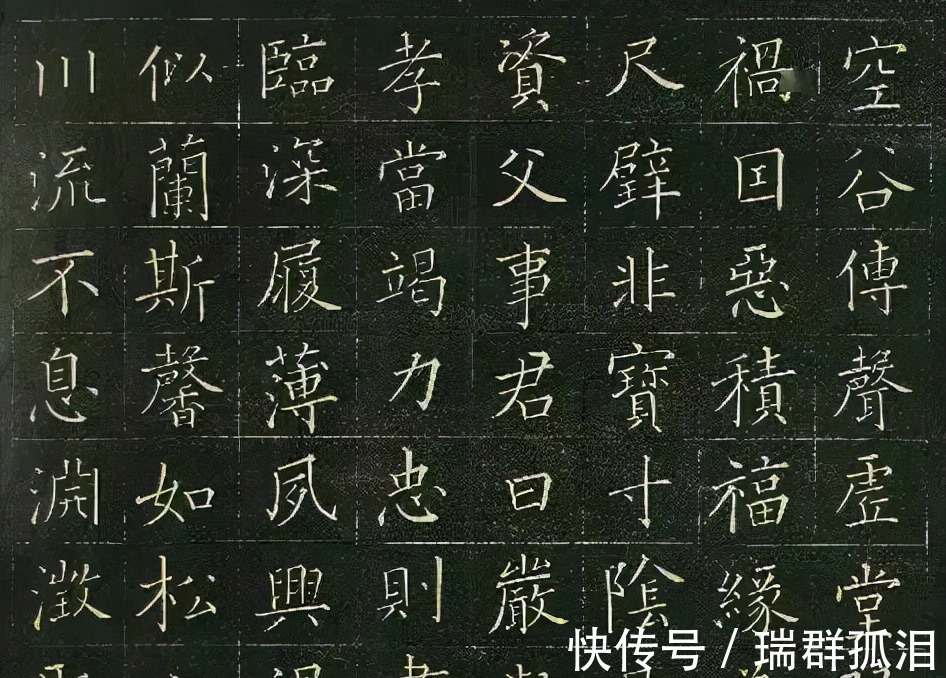 空谷傳聲虛堂
禍囙惡積福緣
尺璧非寶寸陰
資父事君曰嚴
孝當竭力忠則
臨深履薄夙興
似蘭斯馨如松
川流不息淵澂
快传号 / 瑞群孤泪